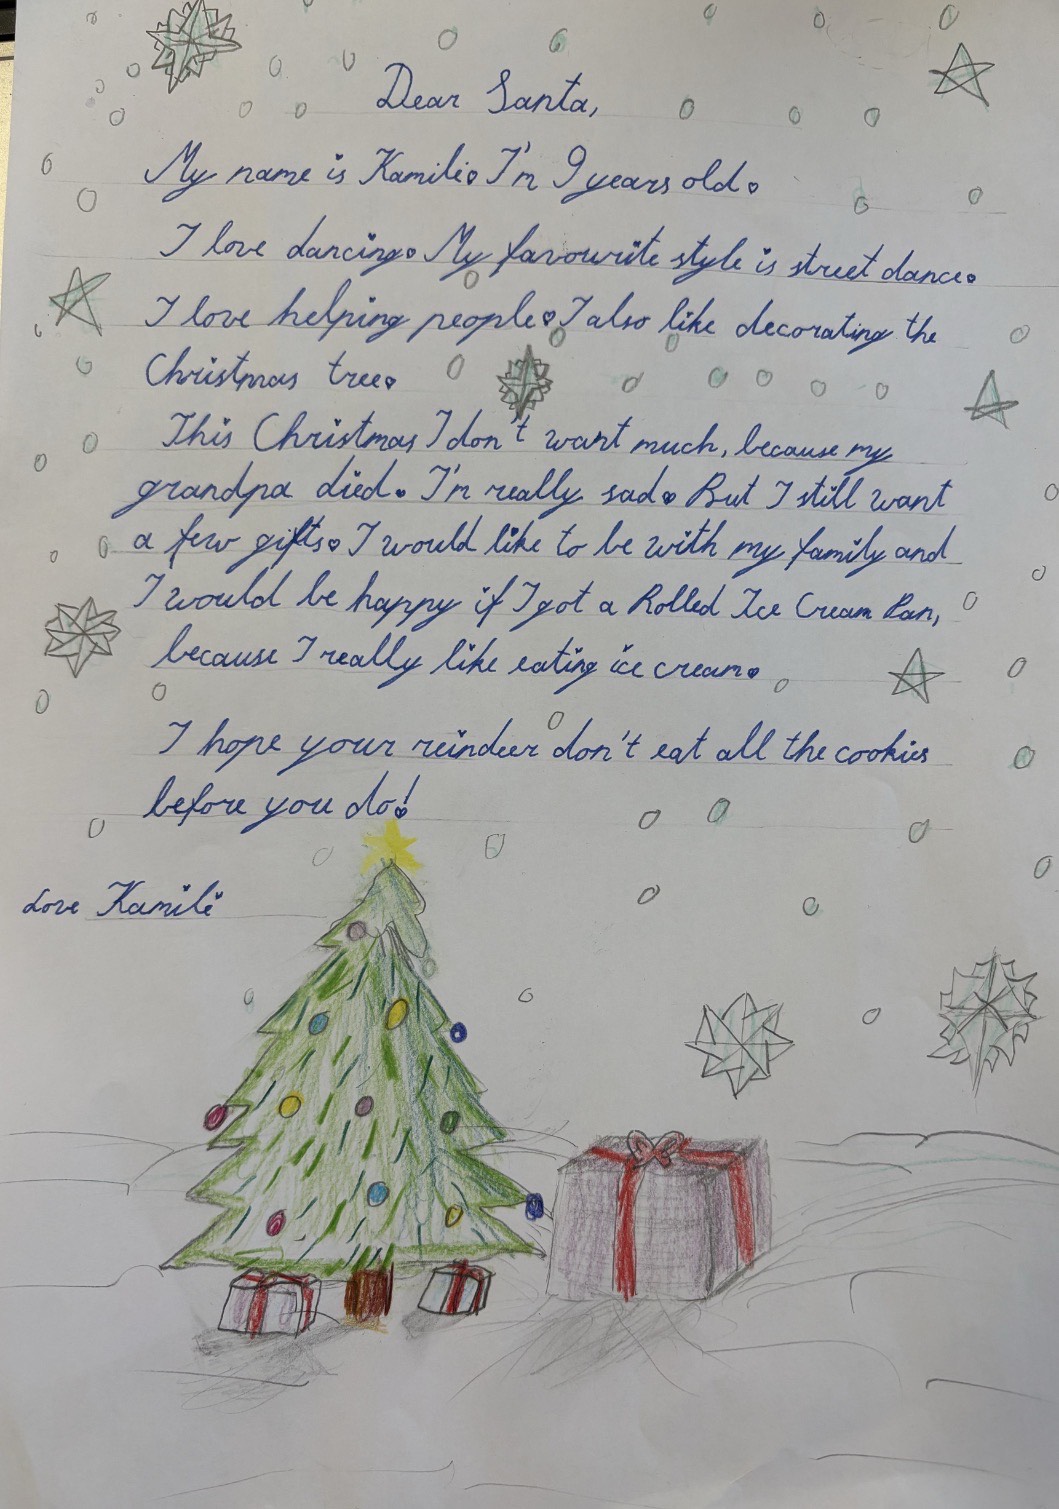 Dear Santa,
My name is Kamilė. I'm 9 years old.
I love dancing. My favourite style is street dance.
I love helping people. I also like decorating the
Christmas tree.
This Christmas I don't want much, because my
grandpa died. I'm really sad. But I still want
a few gifts. I would like to be with my family and
I would be happy if I got a Rolled Ice Cream Pan,
because I really like eating ice cream.
I hope your reindeer don't eat all the cookies
before you do!
Love Kamilė